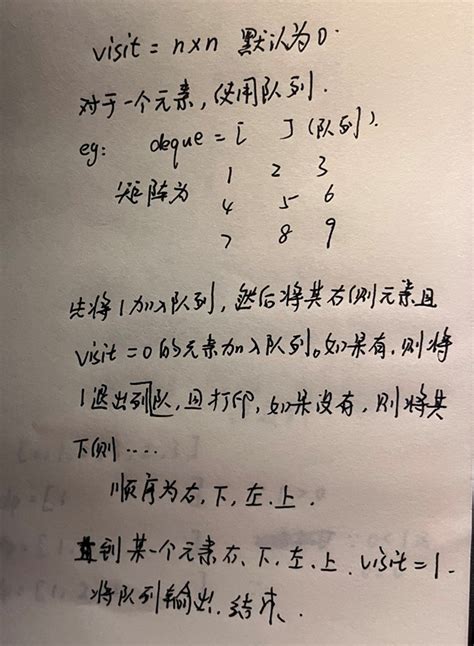 visit = n×n 默认为0.
对于一个元素,使用队列.
eg: deque = [ ] (队列).
1 2 3
矩阵为 4 5 6
7 8 9
先将1加入队列,然后将其右侧元素且
visit=0的元素加入队列。如果有,则将
1退出列队,且打印,如果没有,则将其
下侧....
顺序为右,下,左,上.
直到某一个元素右、下、左、上.visit=1.
将队列输出.结束、